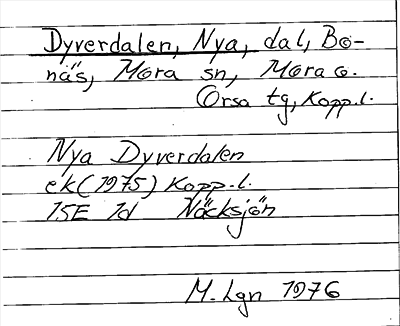 Dyverdalen, Nya, dal, Bo-
näs, Mora sn, Mora o.
Orsa tg, Kopp.l.
Nya Dyverdalen
ek (1975) Kopp.l.
15E 1d Näcksjön
M. Lgn 1976